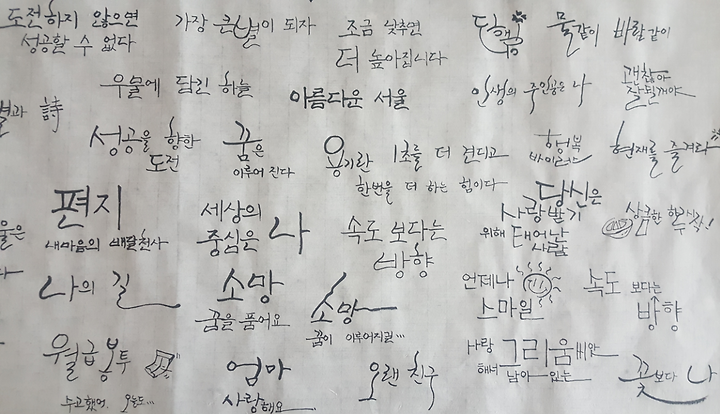 도전하지 않으면
성공할 수 없다
가장 큰 별이 되자
조금 낮추면
더 높아집니다
단행
물같이 바람같이
우물에 담긴 하늘
아름다운 서울
인생의 주인공은 나
괜찮아
잘될꺼야
별과 詩
성공을 향한
도전
꿈은
이루어 진다
용기란
1초를 더 견디고
한번을 더 하는 힘이다
행복
바이러스
현재를 즐겨라
편지
내마음의 배달천사
세상의
중심은 나
속도 보다는
방향
당신은
사랑받기
위해 태어난
사람
상큼한
나의 길
소망
꿈을 품어요
소망
꿈이 이루어지길...
언제나
스마일
속도 보다는
방향
월급봉투
수고했어. 오늘도...
엄마
사랑해요
오랜 친구
사랑
해서
그리움
남아 있는
꽃보다 나